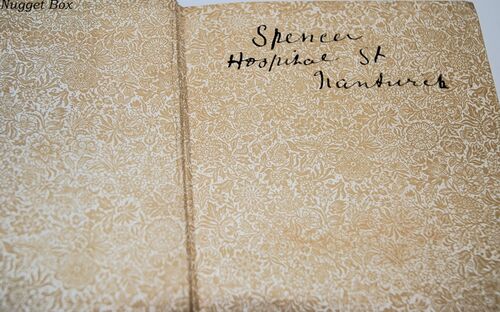 Nugget Box
Spencer
Hospital St
Nantwich